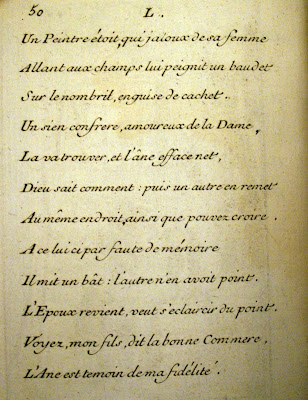 50 L.
Un Peintre étoit, qui jaloux de sa femme
Allant aux champs lui peignit un baudet
Sur le nombril, en guise de cachet.
Un sien confrere, amoureux de la Dame,
La va trouver, et l'âne efface net,
Dieu sait comment : puis un autre en remet
Au même endroit, ainsi que pouvez croire.
A celui ci par faute de mémoire
Il mit un bât : l'autre n'en avoit point.
L'Epoux revient, veut s'eclaircir du point.
Voyez, mon fils, dit la bonne Commere,
L'Ane est temoin de ma fidélité.